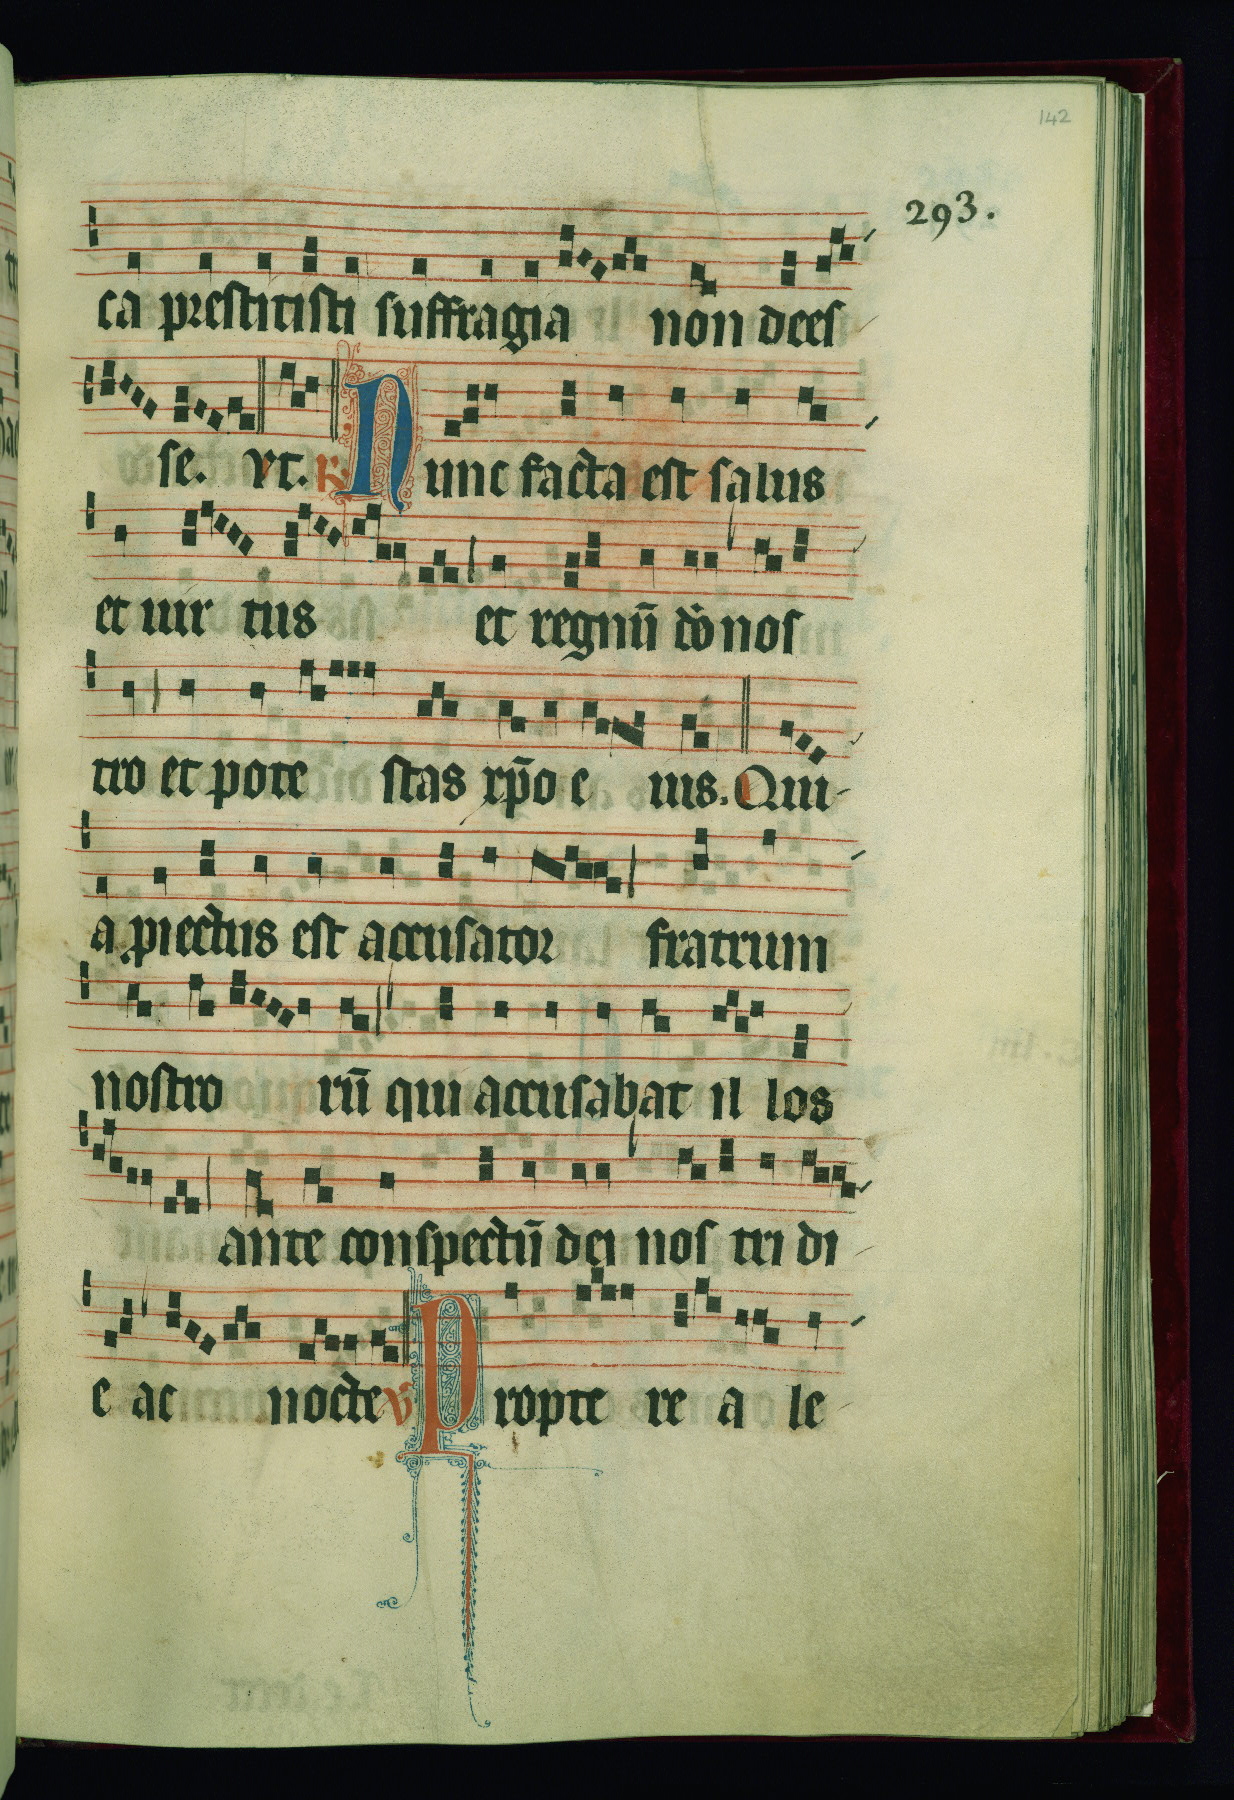 142
293.
ca prestitisti suffragia non dees
se. vt. R. Nunc facta est salus
et uir tus et regnū dō nos
tro et pote stas xp̄o e ius. Qui-
a proiectus est accusator fratrum
nostro rū qui accusabat il los
ante conspectū dei nos tri di
e ac nocte V Propte re a le